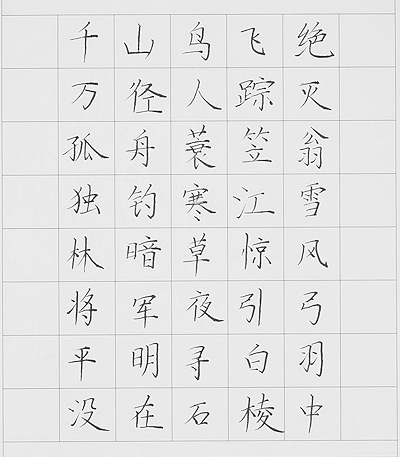 千山鸟飞绝
万径人踪灭
孤舟蓑笠翁
独钓寒江雪
林暗草惊风
将军夜引弓
平明寻白羽
没在石棱中